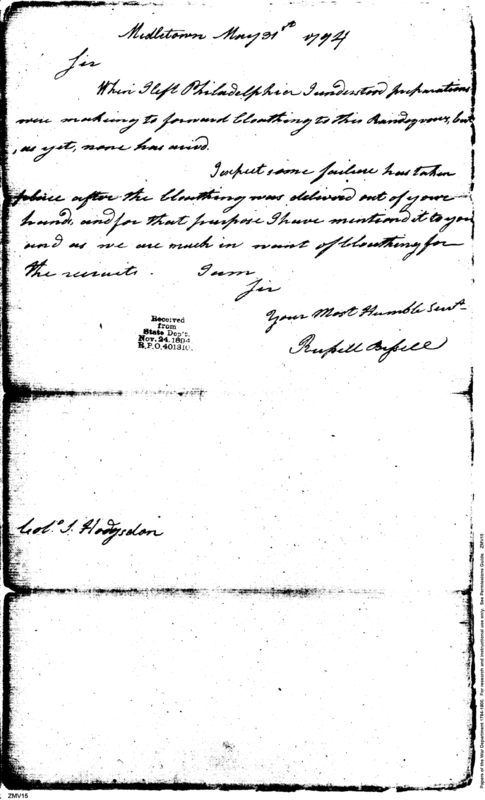 Midletown May 31st 1794
Sir
When I left Philadelphia I understood preparations
were making to forward Cloathing to this Randezvous, but
, as yet, none has arivd.
I espect some failure has taken
place after the Cloathing was deliverd out of your
hand, and for that purpose I have mentiond it to you
and as we are much in want of Cloathing for
the recruits. I am
Sir
Your Most Humble Servt
Russell Bissell
Received
from
State Dep't.
Nov. 24. 1894
R.P.O. 401310.
Colo. S. Hodgsdon
ZMV15
Papers of the War Department 1784-1800. For research and instructional use only. See Permissions Guide. ZMV15